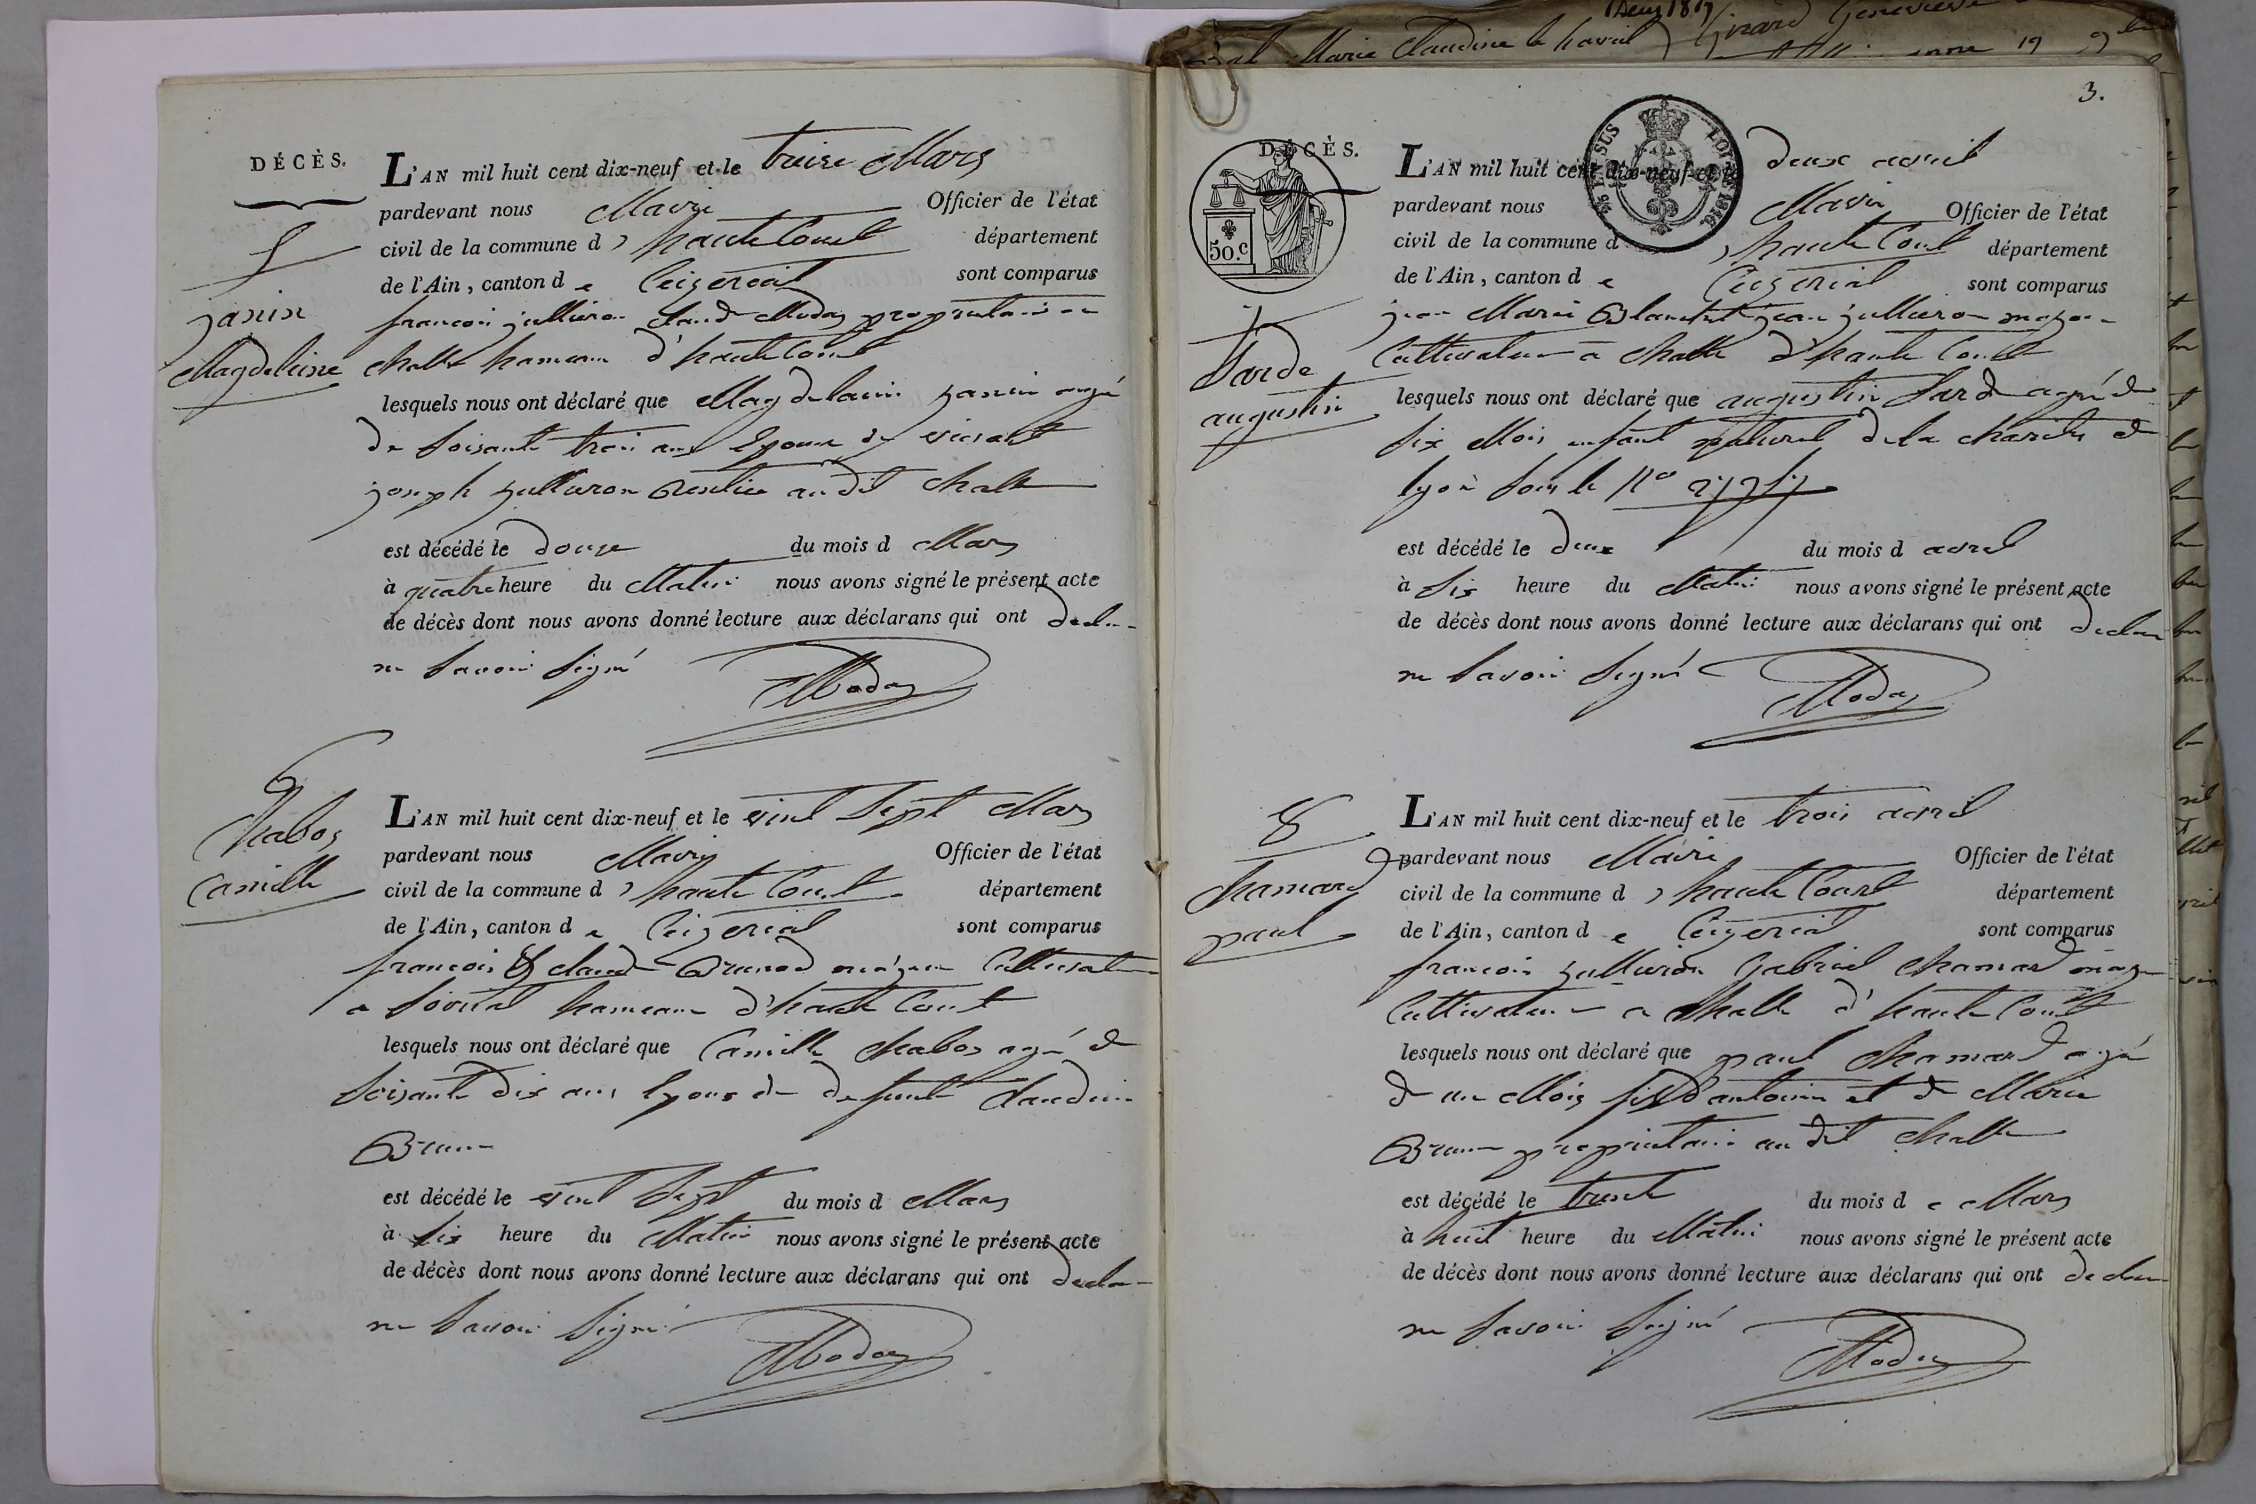 DÉCÈS.
5
janin
Magdeleine
L'AN mil huit cent dix-neuf et le treize Mars
pardevant nous Maire Officier de l'état
civil de la commune d hautecourt département
de l'Ain, canton d e Ceizeriat sont comparus
francois jullieron claude Moday proprietaire a
challe hameau d'hautecourt
lesquels nous ont déclaré que Magdelaine janin agé
de soisante troi ans Epouse de vivant
joseph jullieron Rentier au dit challe
est décédé le douze du mois d Mars
à quatre heure du Matin nous avons signé le présent acte
de décès dont nous avons donné lecture aux déclarans qui ont declare
ne savoir signé
Moday
6
Chabos
Camille
L'AN mil huit cent dix-neuf et le vint sept Mars
pardevant nous Maire Officier de l'état
civil de la commune d haute Court département
de l'Ain, canton d e Ceizeriat sont comparus
francois & claude Brunod Cultivateur
a hameau d'haute Court
lesquels nous ont déclaré que Camille chabos agé de
soisante dix ans Epouse de defunt claude
Brun
est décédé le vint sept du mois d Mars
à six heure du Matin nous avons signé le présent acte
de décès dont nous avons donné lecture aux déclarans qui ont declare
ne savoir signé
Moday
Marie Claudine
Girard Genevieve
19
3.
DÉCÈS.
50.c
EN SUS
LOI DE 1816.
7
Sarde
augustin
L'AN mil huit cent dix-neuf et le deux avril
pardevant nous Maire Officier de l'état
civil de la commune d haute Court département
de l'Ain, canton d e Ceizeriat sont comparus
jean Marie Blanchet jean jullieron
Cultivateur a challe d'haute Court
lesquels nous ont déclaré que augustin Sarde agé de
six Mois enfant naturel de la charité de
lyon sous le No
est décédé le deux du mois d avril
à six heure du Matin nous avons signé le présent acte
de décès dont nous avons donné lecture aux déclarans qui ont declare
ne savoir signé
Moday
8
chamard
paul
L'AN mil huit cent dix-neuf et le trois avril
pardevant nous Maire Officier de l'état
civil de la commune d haute Court département
de l'Ain, canton d e Ceizeriat sont comparus
francois jullieron Gabriel chamard
Cultivateur a challe d'haute Court
lesquels nous ont déclaré que paul chamard agé
de un Mois fils d'antoine et de Marie
Brun propriétaire au dit challe
est décédé le trente du mois d e Mars
à huit heure du Matin nous avons signé le présent acte
de décès dont nous avons donné lecture aux déclarans qui ont declare
ne savoir signé
Moday